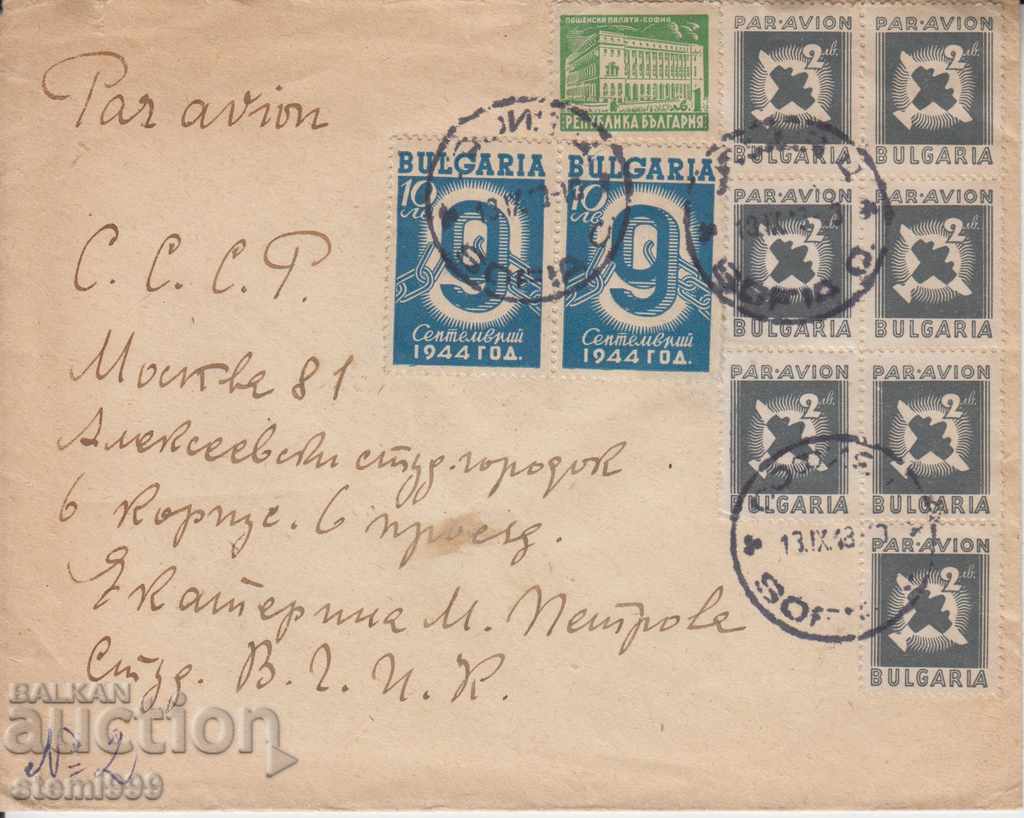 Par avion
ПОЩЕНСКИ ПАЛАТИ-СОФИЯ
ЛВ. 1
РЕПУБЛИКА БЪЛГАРИЯ
BULGARIA
10 лв.
9
Септемврий
1944 ГОД.
BULGARIA
10 лв.
9
Септемврий
1944 ГОД.
PAR·AVION
2 лв.
BULGARIA
PAR·AVION
2 лв.
BULGARIA
PAR·AVION
2 лв.
BULGARIA
PAR·AVION
2 лв.
BULGARIA
PAR·AVION
2 лв.
BULGARIA
PAR·AVION
2 лв.
BULGARIA
PAR·AVION
2 лв.
BULGARIA
SOFIA
SOFIA
13.IX.48
SOFIA
С. С. С. Р.
Москва 81
Алексеевски студ. городок
6 корпус. 6 проезд.
Екатерина М. Петрова
Студ. В. Г. И. К.
BALKAN
auction
№ 2
stemi999